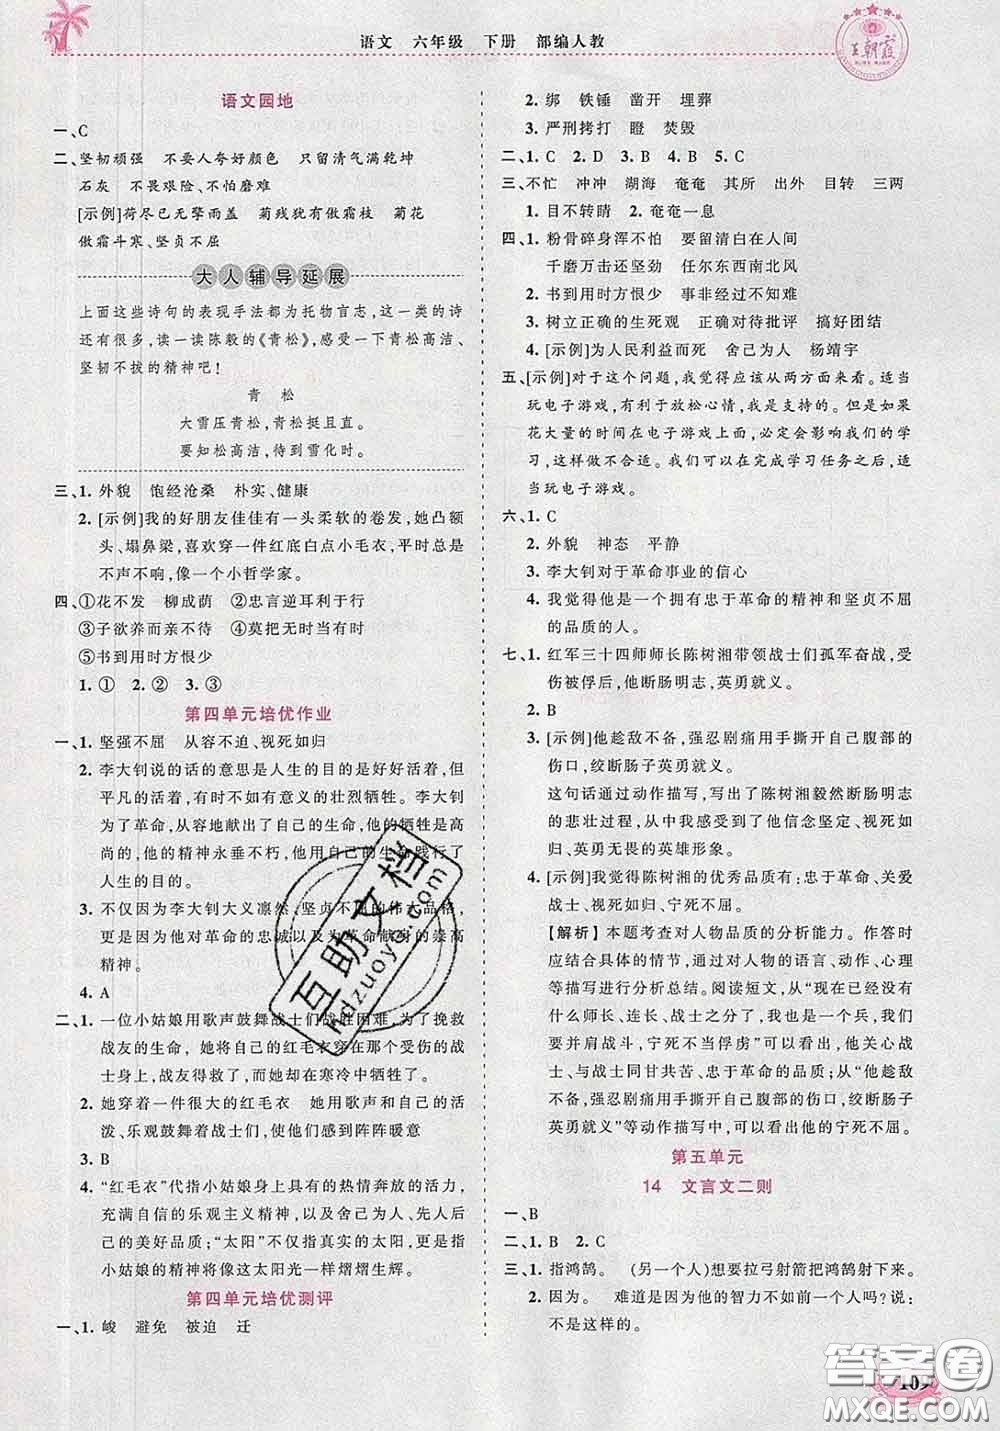 语文 六年级 下册 部编人教
王朝霞
语文园地
一、C
二、坚韧顽强 不要人夸好颜色 只留清气满乾坤
石灰 不畏艰险、不怕磨难
[示例]荷尽已无擎雨盖 菊残犹有傲霜枝 菊花
傲霜斗寒、坚贞不屈
大人辅导延展
上面这些诗句的表现手法都为托物言志,这一类的诗
还有很多,读一读陈毅的《青松》,感受一下青松高洁、
坚韧不拔的精神吧!
青 松
大雪压青松,青松挺且直。
要知松高洁,待到雪化时。
三、1. 外貌 饱经沧桑 朴实、健康
2. [示例]我的好朋友佳佳有一头柔软的卷发,她凸额
头、塌鼻梁,喜欢穿一件红底白点小毛衣,平时总是
不声不响,像一个小哲学家。
四、①花不发 柳成荫 ②忠言逆耳利于行
③子欲养而亲不待 ④莫把无时当有时
⑤书到用时方恨少
1. ① 2. ② 3. ③
第四单元培优作业
一、1. 坚强不屈 从容不迫、视死如归
2. 李大钊说的话的意思是人生的目的是好好活着,但
平凡的活着,有时不如有意义的壮烈牺牲。李大钊
为了革命,从容地献出了自己的生命,他的牺牲是高
尚的,他的精神永垂不朽,他用自己的生命践行了
人生的目的。
3. 不仅因为李大钊大义凛然、坚贞不屈的伟大品格,
更是因为他对革命的忠诚以及为革命献身的崇高
精神。
4. A
二、1. 一位小姑娘用歌声鼓舞战士们战胜困难,为了挽救
战友的生命,她将自己的红毛衣穿在那个受伤的战
士身上,战士得救了,而她却在寒冷中牺牲了。
2. 她穿着一件很大的红毛衣 她用歌声和自己的活
泼、乐观鼓舞着战士们,使人感到阵阵暖意
3. B
4. “红毛衣”代指小姑娘身上具有的热情奔放的活力,
充满自信的乐观主义精神,以及舍己为人、先人后
己的美好品质;“太阳”不仅指真实的太阳,更指
小姑娘的精神就像这太阳光一样熠熠生辉。
第四单元培优测评
一、1. 峻 避免 被迫 迁
2. 绑 铁锤 凿开 埋葬
3. 严刑拷打 瞪 焚毁
二、1. C 2. D 3. B 4. B 5. C
三、不忙 冲冲 湖海 奄奄 其所 出外 目转 三两
1. 目不转睛 2. 奄奄一息
四、1. 粉骨碎身浑不怕 要留清白在人间
千磨万击还坚劲 任尔东西南北风
2. 书到用时方恨少 事非经过不知难
3. 树立正确的生死观 正确对待批评 搞好团结
4. [示例]为人民利益而死 舍己为人 杨靖宇
五、[示例]对于这个问题,我觉得应该从两方面来看。适当
玩电子游戏,有利于放松心情,我是支持的。但是如果
花大量的时间在电子游戏上面,必定会影响我们的学
习,这样做不合适。我们可以在完成学习任务之后,适
当玩电子游戏。
六、1. C
2. 外貌 神态 平静
3. 李大钊对于革命事业的信心
4. 我觉得他是一个拥有忠于革命的精神和坚贞不屈
的品质的人。
七、1. 红军三十四师师长陈树湘带领战士们孤军奋战,受
伤被俘后,他断肠明志,英勇就义。
2. B
3. [示例]他趁敌不备,强忍剧痛用手撕开自己腹部的
伤口,绞断肠子英勇就义。
这句话通过动作描写,写出了陈树湘毅然断肠明志
的悲壮过程,从中感受到了他信念坚定、视死如
归、英勇无畏的英雄形象。
4. [示例]我觉得陈树湘的优秀品质有:忠于革命、关爱
战士、视死如归、宁死不屈。
[解析] 本题考查对人物品质的分析能力。作答时
应结合具体的情节,通过对人物的语言、动作、心理
等描写进行分析总结。阅读短文,从“现在已经没有
什么师长、连长、战士之分了,我也是一个兵,我们要
并肩战斗,宁死不当俘虏”可以看出,他关心战
士、与战士同甘共苦、忠于革命的品质;从“他趁敌
不备,强忍剧痛用手撕开自己腹部的伤口,绞断肠子
英勇就义”等动作描写中,可以看出他的宁死不屈。
第五单元
14 文言文二则
一、B
二、1. B 2. C
三、1. 指鸿鹄。 (另一个人)想要拉弓射箭把鸿鹄射下来。
2. 因为。 难道是因为他的智力不如前一个人吗?说:
不是这样的。
109
互助文档
hdzuoye.com
答案圈
MXQE.COM